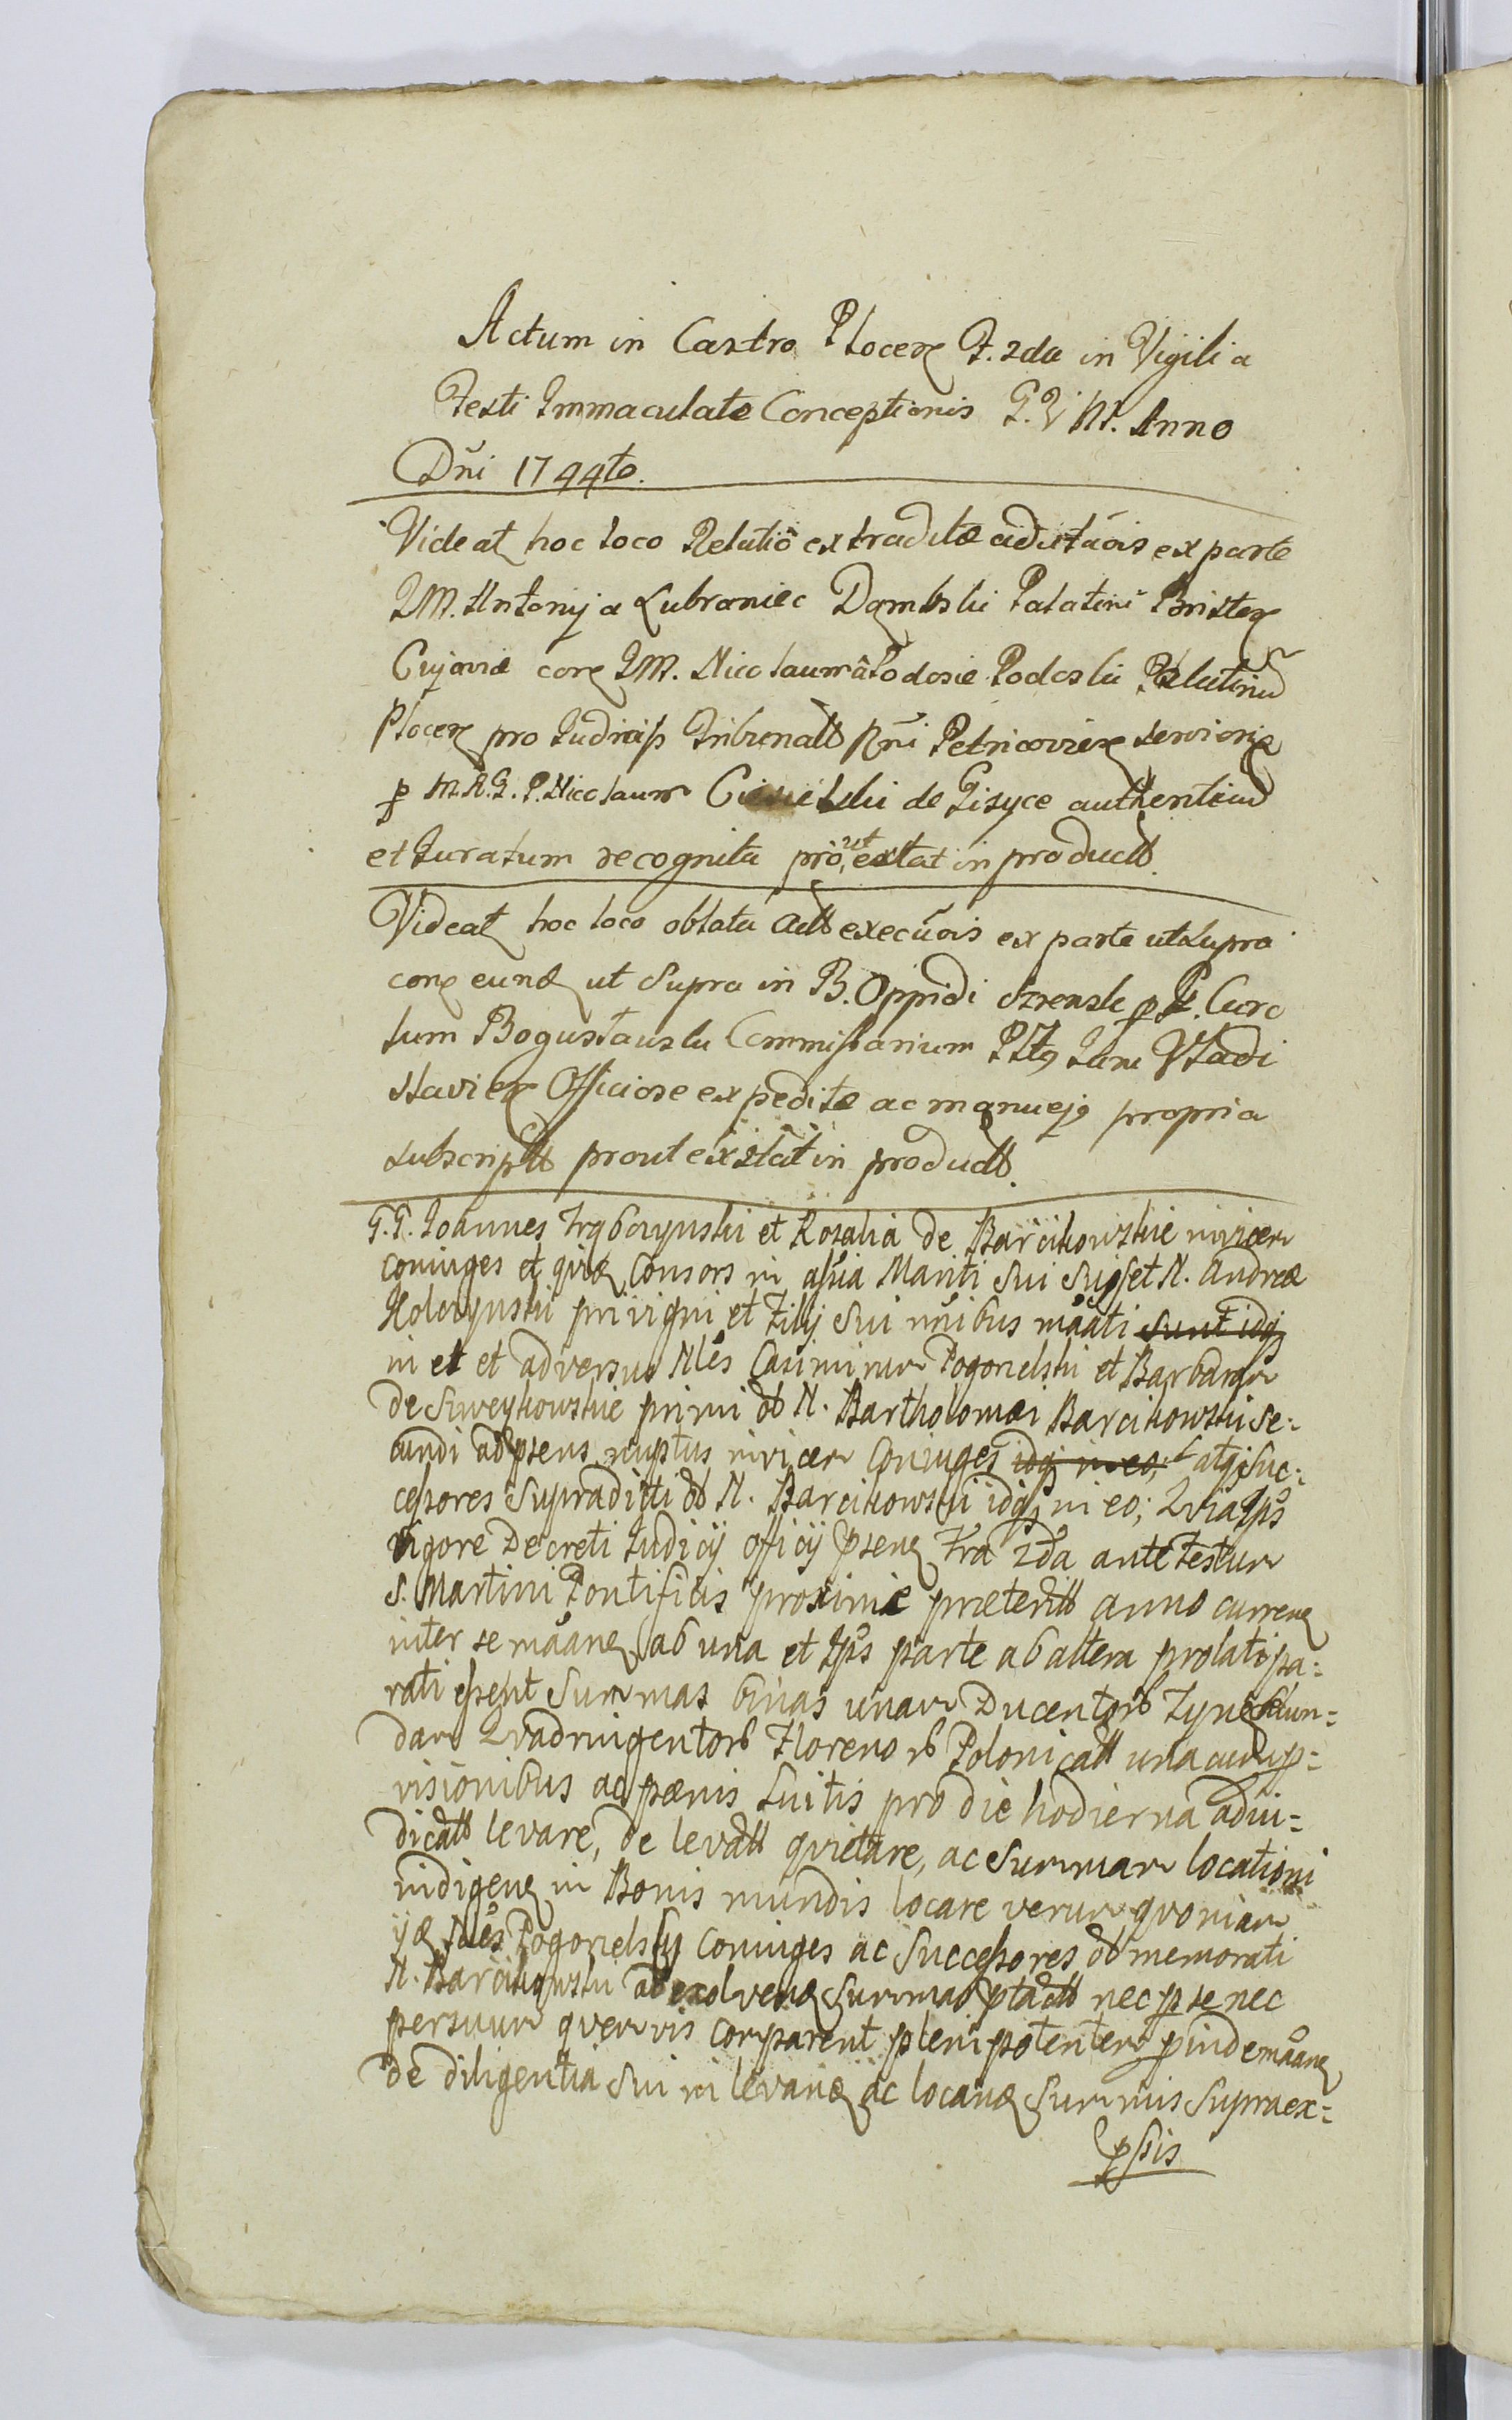 Actum in Castro Plocen F. 2da in Vigilia
Festi Immaculatæ Conceptionis G. V. M. Anno
Dñi 1744to.
Videat hoc loco Relatio extraditæ adcitaõis ex parte
IM. Antonij a Lubraniec Dąmbski Palatini Bristen
Cujaviæ con IM. Nicolaum â Podosie Podoski Palatinũ
Plocen pro Judicijs Tribunalib Rñi Petricovien servien
p M. R. G. P. Nicolaum de Gisyce authenticũ
et Juratum recognita pro ut extat in productt.
Videat hoc loco oblata Actt execũois ex parte ut supra
con eund ut Supra in B. Oppidi Szrensk p P. Caro
lum Bogustauski Commissarium
slavien Officiose expeditæ ac manu ejq propria
subscriptt prout exstat in productt.
G. G. Joannes et Rosalia de Barcikowskie invicem
coniuges et quid Consors in assũa Mariti Sui Suoq et N. Andreæ
privigni et Filij Sui nñibus mãati sunt idq
in et et adversus Nlẽs Casimirum Pogorzelski et Barbaram
de primi ob N. Bartholomæi Barcikowski Se:
cundi ad psens nuptus invicem Coniuges idq in eo; atq Suc:
cessores Supradicti ob N. Barcikowski idq in eo; Quia Ips
vigore Decreti Judicij officij psen Fra 2da ante Festum
S. Martini Pontificis proxime præteritt anno curren
inter se mãan ab una et Ips parte ab altera prolati pa:
rati essent Summas binas unam Ducentorb Tynf secun=
dam Quadringentorb Florenorb Polonicatt una cum p=
visionibus ac pænis Luitis pro die hodierna adiu=
dicatt levare, de levatt quietare, ac Summam locationi
indigen in Bonis mundis locare verum quoniam
ijd Nlẽs Pogorzelscy Coniuges ac Successores ob memorati
N. Barcikowski ad exolvend Summas ptactt nec p se nec
per suum quemvis comparent plenipotentem pinde mãan
de diligentia Sui in levand ac locand Summis Supraex=
pssis